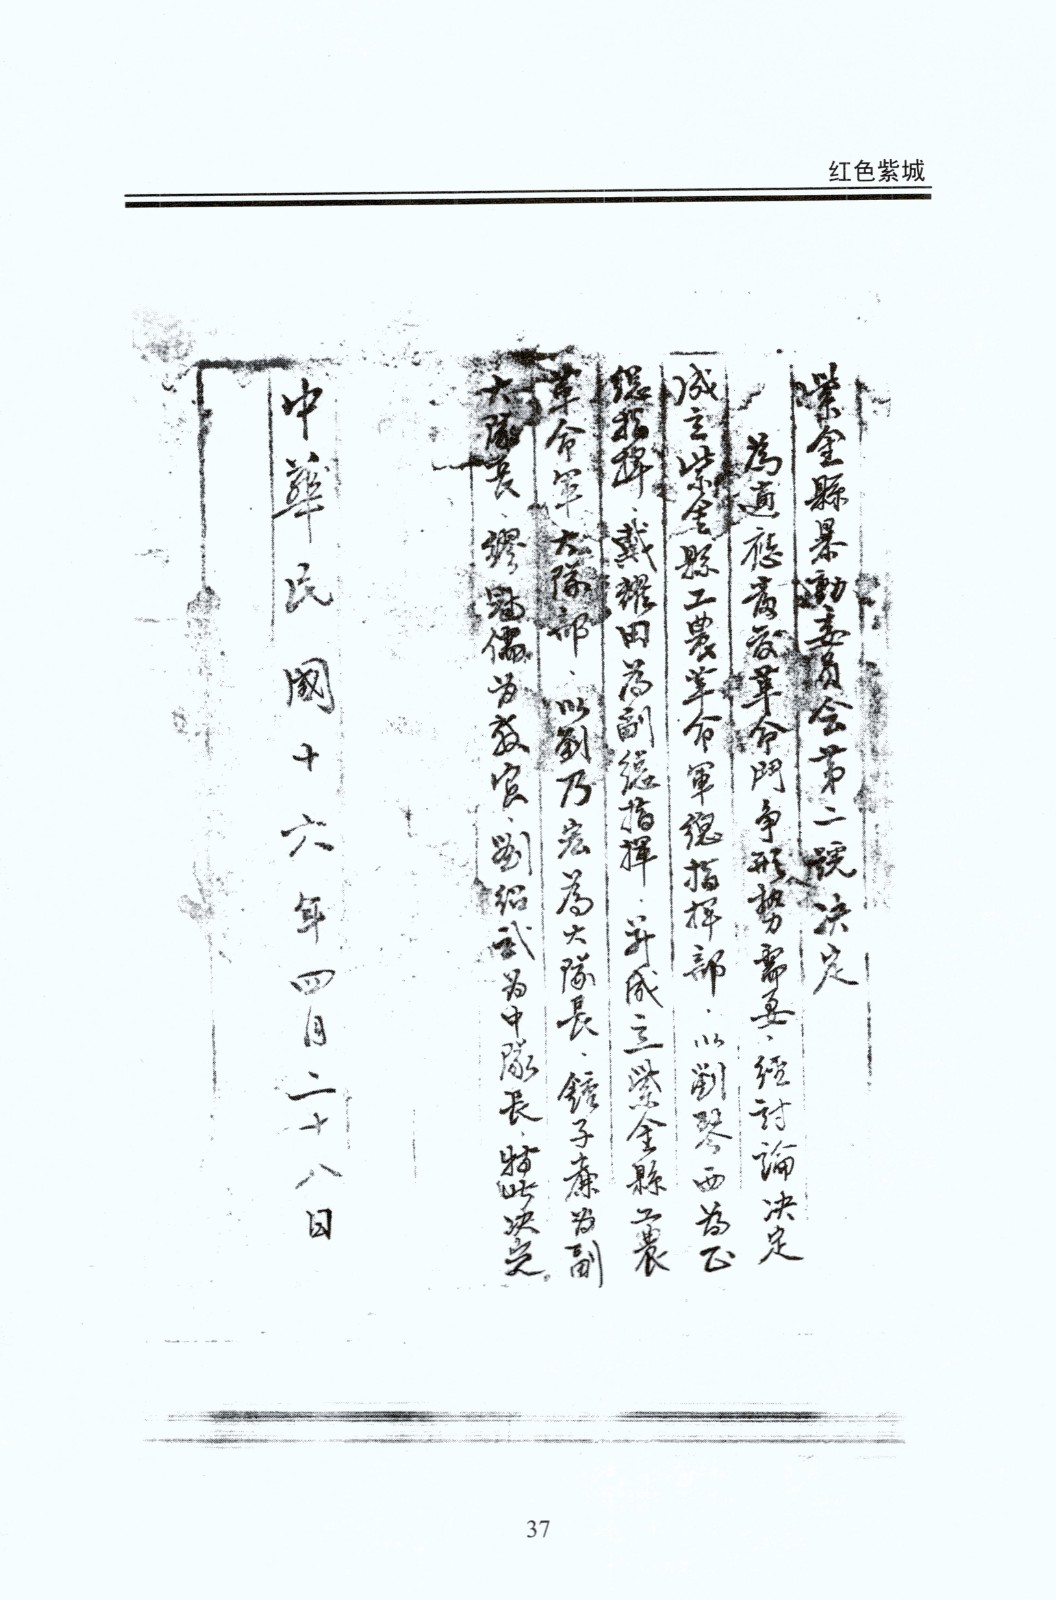 红色紫城
紫金縣暴動委員会第二號决定
為適應當前革命鬥争形勢需要、經討論决定
成立紫金縣工農革命軍總指揮部、以劉琴西為正
總指揮、戴耀田為副總指揮、并成立紫金縣工農
革命軍大隊部、以劉乃宏為大隊長、鍾子廉为副
大隊長、繆冠儒为教官、劉紹武为中隊長、特此决定。
中華民國十六年四月二十八日
37